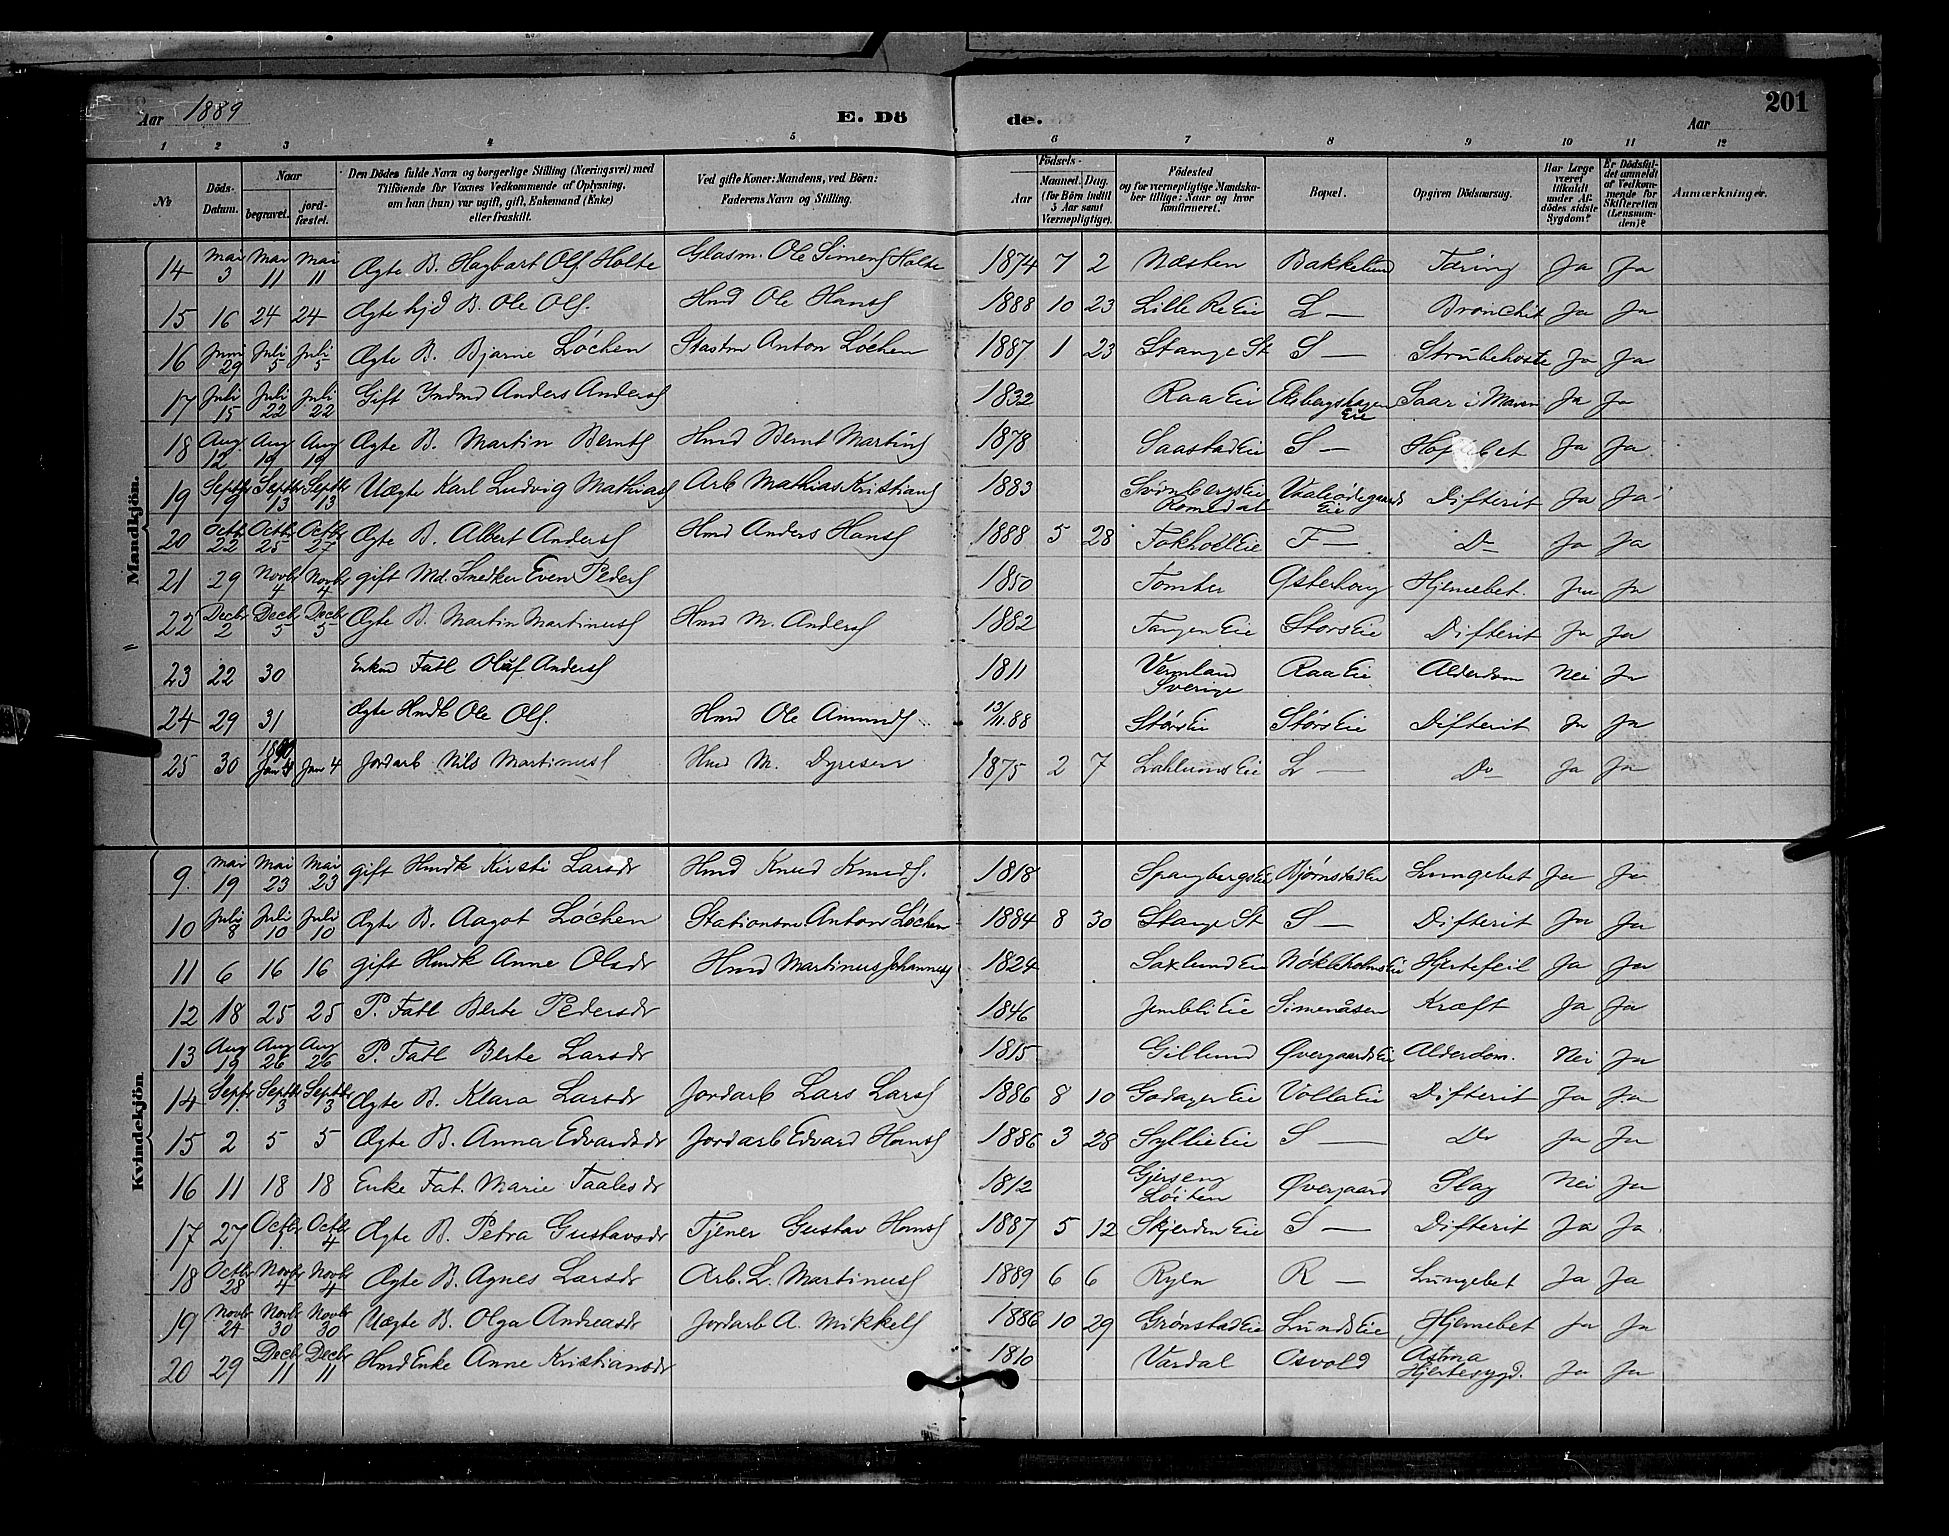 Aar 1889 E. Dö de. Aar 201
1 2 3 4 5 6 7 8 9 10 11 12
No
Döds-Datum.
Naar
begravet.
jord-fæstet.
Den Dödes fulde Navn og borgerlige Stilling (Næringsvei) med
Tilföiende for Voxnes Vedkommende af Oplysning,
om han (hun) var ugift, gift, Enkemand (Enke)
eller fraskilt.
Ved gifte Koner: Mandens, ved Börn:
Faderens Navn og Stilling.
Födsels-
Aar
Maaned. Dag.
(for Börn indtil
5 Aar samt
Værnepligtige).
Födested
og for værnepligtige Mandska-
ber tillige: Naar og hvor
konfirmeret.
Bopæl.
Opgiven Dödsaarsag.
Har Læge
været
tilkaldt
under Af-
dödes sidste
Sygdom?
Er Dödsfal-
det anmeldt
af Vedkom-
mende for
Skifteretten
(Lensman-
den)?
Anmærkninger.
Mandkjön.
14 Mai 3 Mai 11 Mai 11 Ægte B. Hagbart Ols. Holte Glasm. Ole Simens Holte 1874 7 2 Næsten Bakkelund Tæring Ja Ja
15 16 24 24 Ægte hjd B. Ole Ols. Hmd Ole Hans 1888 10 23 Lille Re Eie L — Bronchit Ja Ja
16 Juni 29 Juli 5 Juli 5 Ægte B. Bjarne Løchen Stastm Anton Løchen 1887 1 23 Stange St S — Strubehoste Ja Ja
17 Juli 15 Juli 22 Juli 22 Gift Indmd Anders Anders 1832 Raa Eie Ekebergshagen Eie Saar i Maven Ja Ja
18 Aug 12 Aug 19 Aug 19 Ægte B. Martin Bernts Hmd Bernt Martins 1878 Saastad Eie S — Ja Ja
19 Septbr 9 Septbr 13 Septbr 13 Uægte Karl Ludvig Mathias Arb Mathias Kristians 1883 Romedal Eie Difterit Ja Ja
20 Octbr 22 Octbr 25 Octbr 27 Ægte B. Albert Anders Hmd Anders Hans 1888 5 28 Fokhol Eie F — Do Ja Ja
21 29 Novbr 4 Novbr 4 gift Md. Snedker Even Peders 1850 Tomter Østerhaug Hjernebet. Ja Ja
22 Decbr 2 Decbr 5 Decbr 5 Ægte B. Martin Martinus Hmd M. Anders 1882 Tangen Eie Stors Eie Difterit Ja Ja
23 22 30 Enkmd Fatl Oluf Anders 1811 Vermland Sverige Raa Eie Alderdom Nei Ja
24 29 31 Ægte Hmdb Ole Ols. Hmd Ole Amunds 13/11.88 Stors Eie Stors Eie Difterit Ja Ja
25 30 1890 Jan 4 Jan 4 Jordarb Nils Martinus Hmd M. Dyresen 1875 2 7 Lahlums Eie L — Do Ja Ja
Kvindekjön.
9. Mai 19 Mai 23 Mai 23 gift Hmdk Kirsti Larsdr Hmd Knud Knuds. 1818 Spangbergs Eie Bjørnstad Eie Lungebet Ja Ja
10 Juli 8 Juli 10 Juli 10 Ægte B. Aagot Løchen Stationsm. Anton Løchen 1884 8 30 Stange St S — Difterit Ja Ja
11 6 16 16 gift Hmdk Anne Olsdr Hmd Martinus Johannes 1824 Saxlund Eie Nøkleholms Eie Hjertefeil Ja Ja
12 18 25 25 P. Fatl Berte Pedersdr 1846 Jembli Eie Simenåsen Kræft Ja Ja
13 Aug 19 Aug 26 Aug 26 P. Fatl Berte Larsdr 1815 Gillund Øvergaards Eie Alderdom. Nei Ja
14 Septbr 1. Septbr 3 Septbr 3 Ægte B. Klara Larsdr Jordarb Lars Lars 1886 8 10 Godager Eie Volla Eie Difterit Ja Ja
15 2 5 5 Ægte B. Anna Edvardsdr Jordarb Edvard Hans 1886 3 28 Syllie Eie S — Do Ja Ja
16 11 18 18 Enke Fat. Marie Taalesdr 1812 Løiten Øvergaard Slag Nei Ja
17 27 Octbr 1. Octbr 4 Ægte B. Petra Gustavsdr Tjener Gustav Hans 1887 5 12 Skjerden Eie S — Difterit Ja Ja
18 Octbr 28 Novbr 4 Novbr 4 Ægte B. Agnes Larsdr Arb. L. Martinus 1889 6 6 Ryen R — Lungebet Ja Ja
19 Novbr 24 Novbr 30 Novbr 30 Uægte B. Olga Andreasdr Jordarb A. Mikkels 1886 10 29 Grønstad Eie Lunds Eie Hjernebet Ja Ja
20 29 Decbr 11 Decbr 11 Hmd Enke Anne Kristiansdr 1810 Vardal Osvold Astma Hjertesygd. Ja Ja